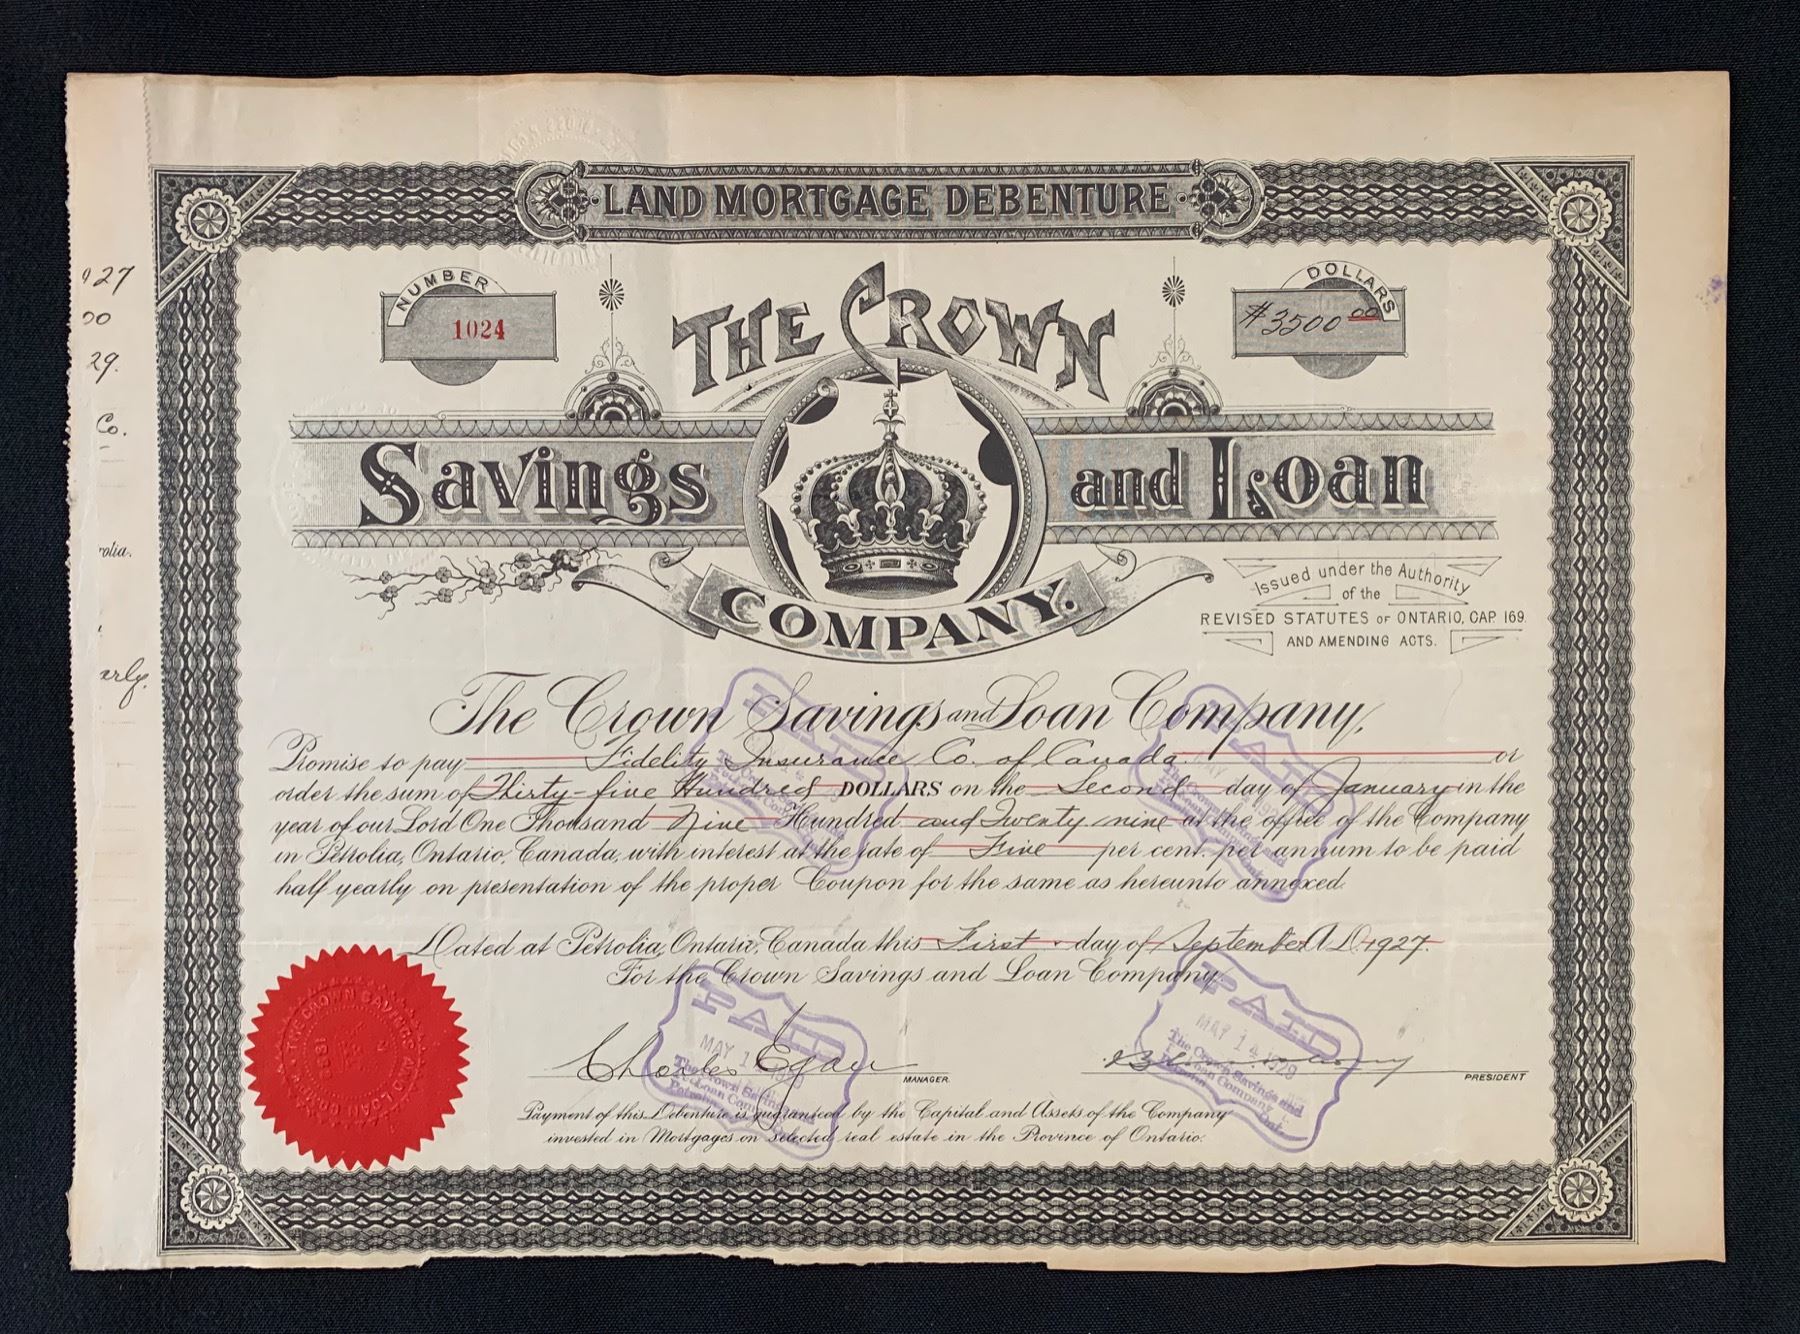 LAND MORTGAGE DEBENTURE
NUMBER
1024
DOLLARS
$3500.00
THE CROWN
Savings and Loan
COMPANY.
Issued under the Authority
of the
REVISED STATUTES OF ONTARIO, CAP 169.
AND AMENDING ACTS.
927
00
29.
Co.
rolia.
erly.
The Crown Savings and Loan Company,
Promise to pay Fidelity Insurance Co. of Canada. or
order the sum of Thirty-five Hundred DOLLARS on the Second day of January in the
year of our Lord One Thousand Nine Hundred and Twenty nine at the office of the Company
in Petrolia, Ontario, Canada, with interest at the rate of Five per cent. per annum to be paid
half yearly on presentation of the proper Coupon for the same as hereunto annexed.
Dated at Petrolia, Ontario, Canada this First day of September A.D. 1927.
For the Crown Savings and Loan Company.
Charles Egan
MANAGER.
PRESIDENT
Payment of this Debenture is guaranteed by the Capital and Assets of the Company
invested in Mortgages on selected real estate in the Province of Ontario.
THE CROWN SAVINGS AND LOAN COMPANY
PAID
PAID
PAID
MAY 1
The Crown Savings and
Loan Company
PAID
MAY 14 1929
The Crown Savings and
Loan Company